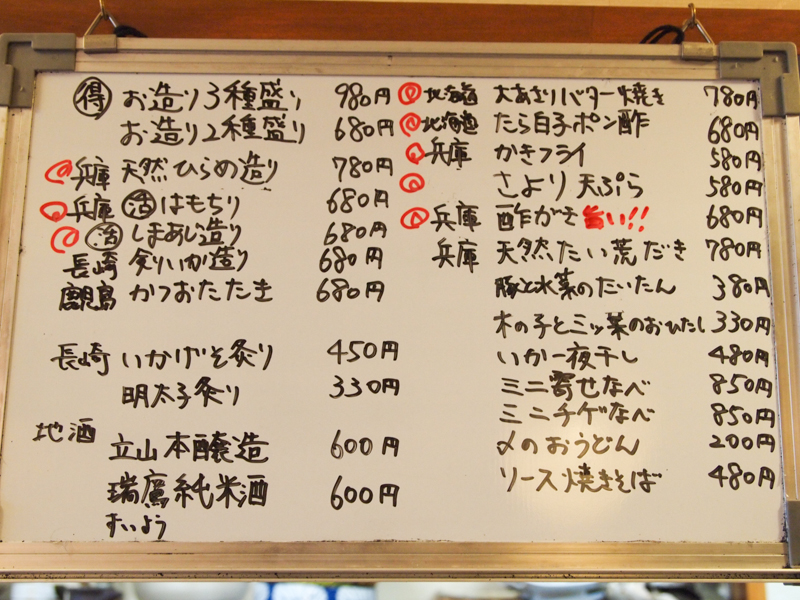 得 お造り3種盛り 980円
お造り2種盛り 680円
兵庫 天然ひらめ造り 780円
兵庫 活 はもちり 680円
活 しまあじ造り 680円
長崎 炙りいか造り 680円
鹿児島 かつおたたき 680円
長崎 いかげそ炙り 450円
明太子炙り 330円
地酒
立山本醸造 600円
瑞鷹純米酒 600円
ずいよう
北海道 大あさりバター焼き 780円
北海道 たら白子ポン酢 680円
兵庫 かきフライ 580円
さより天ぷら 580円
兵庫 酢がき 旨い!! 680円
兵庫 天然たい荒だき 780円
豚と水菜のたいたん 380円
木の子と三ッ葉のおひたし 330円
いか一夜干し 480円
ミニ寄せなべ 850円
ミニチゲなべ 850円
〆のおうどん 200円
ソース焼きそば 480円